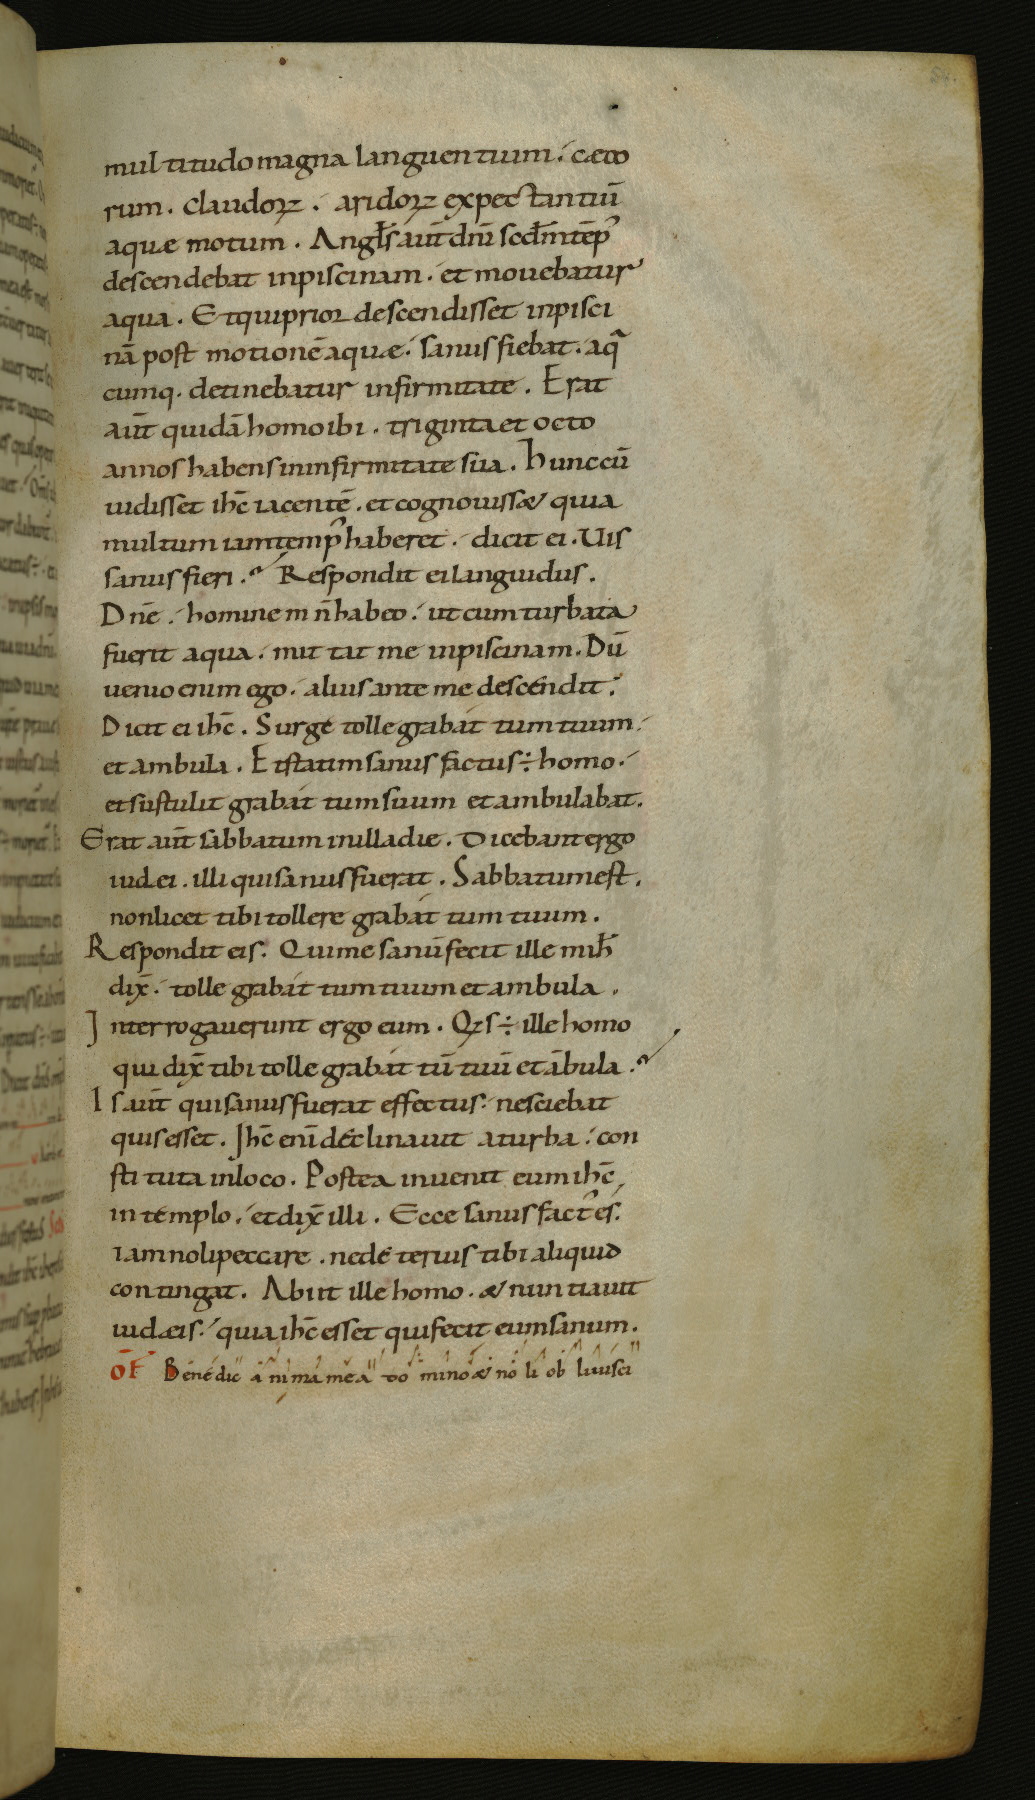 multitudo magna languentium. cæco
rum. claudoꝝ. aridoꝝ expectantiū
aquæ motum. Angl̄s aut̄ dn̄i scd̄m tēp᾽
descendebat inpiscinam. et mouebatur
aqua. Et qui prior descendisset inpisci
nā post motionē aquæ. sanus fiebat. a q̄
cumq. detinebatur infirmitate. Erat
aut̄ quidā homo ibi. triginta et octo
annos habens ininfirmitate sua. Hunc cū
uidisset ihc̄ iacentē. et cognouissæ quia
multum iam temp᾽ haberet. dicit ei. Uis
sanus fieri. Respondit ei languidus.
Dn̄e. hominem n̄ habeo. ut cum turbata
fuerit aqua. mittat me inpiscinam. Dū
uenio enim ego. alius ante me descendit.
Dicit ei ihc̄. Surge tolle grabattum tuum.
et ambula. Et statim sanus factus ÷ homo.
et sustulit grabattum suum et ambulabat.
Erat aut̄ sabbatum in illa die. Dicebant ergo
iudei. illi qui sanus fuerat. Sabbatum est.
non licet tibi tollere grabattum tuum.
Respondit eis. Qui me sanū fecit ille mih̄
dix̄. tolle grabattum tuum et ambula.
Interrogauerunt ergo eum. Qꝫs ÷ ille homo
qui dix̄ tibi tolle grabattū tuū et ābula.
Is aut̄ qui sanus fuerat effectus. nesciebat
quis esset. Ihc̄ eni declinauit a turba. con
stituta inloco. Postea inuenit eum ihc̄
in templo. et dix̄ illi. Ecce sanus fact᾽ es.
iam noli peccare. ne deterius tibi aliquid
contingat. Abiit ille homo. & nuntiauit
iudæis. quia ihc̄ esset qui fecit eum sanum.
OF Benedic anima mea domino & noli obliuisci